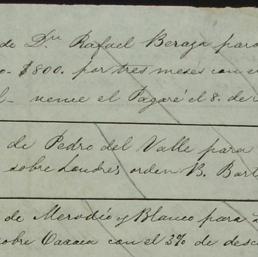 de Dn Rafael Beraza para
$800. por tres meses con el
vence el Pagaré el 8. de
de Pedro del Valle para
sobre Londres orden B. Bart
de Merodio y Blanco para
sobre Oaxaca con el 3% de desc